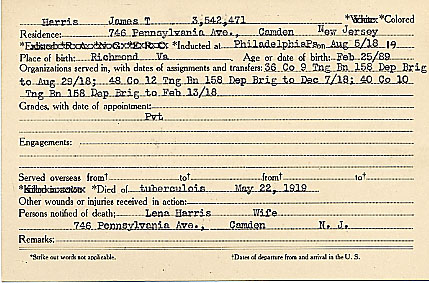 Harris James T. 3,542,471 *White *Colored
Residence: 746 Pennsylvania Ave., Camden New Jersey
*Enlisted R. A. *N. G. *E. R. C. *Inducted at Philadelphia Pa on Aug 5/18 19
Place of birth: Richmond Va Age or date of birth: Feb 25/89
Organizations served in, with dates of assignments and transfers: 36 Co 9 Tng Bn 158 Dep Brig
to Aug 29/18; 48 Co 12 Tng Bn 158 Dep Brig to Dec 7/18; 40 Co 10
Tng Bn 158 Dep Brig to Feb 13/18
Grades, with date of appointment:
Pvt
Engagements:
Served overseas from† to† from† to†
*Killed in action *Died of tuberculosis May 22, 1919
Other wounds or injuries received in action:
Persons notified of death: Lena Harris Wife
746 Pennsylvania Ave., Camden N. J.
Remarks:
*Strike out words not applicable. †Dates of departure from and arrival in the U. S.